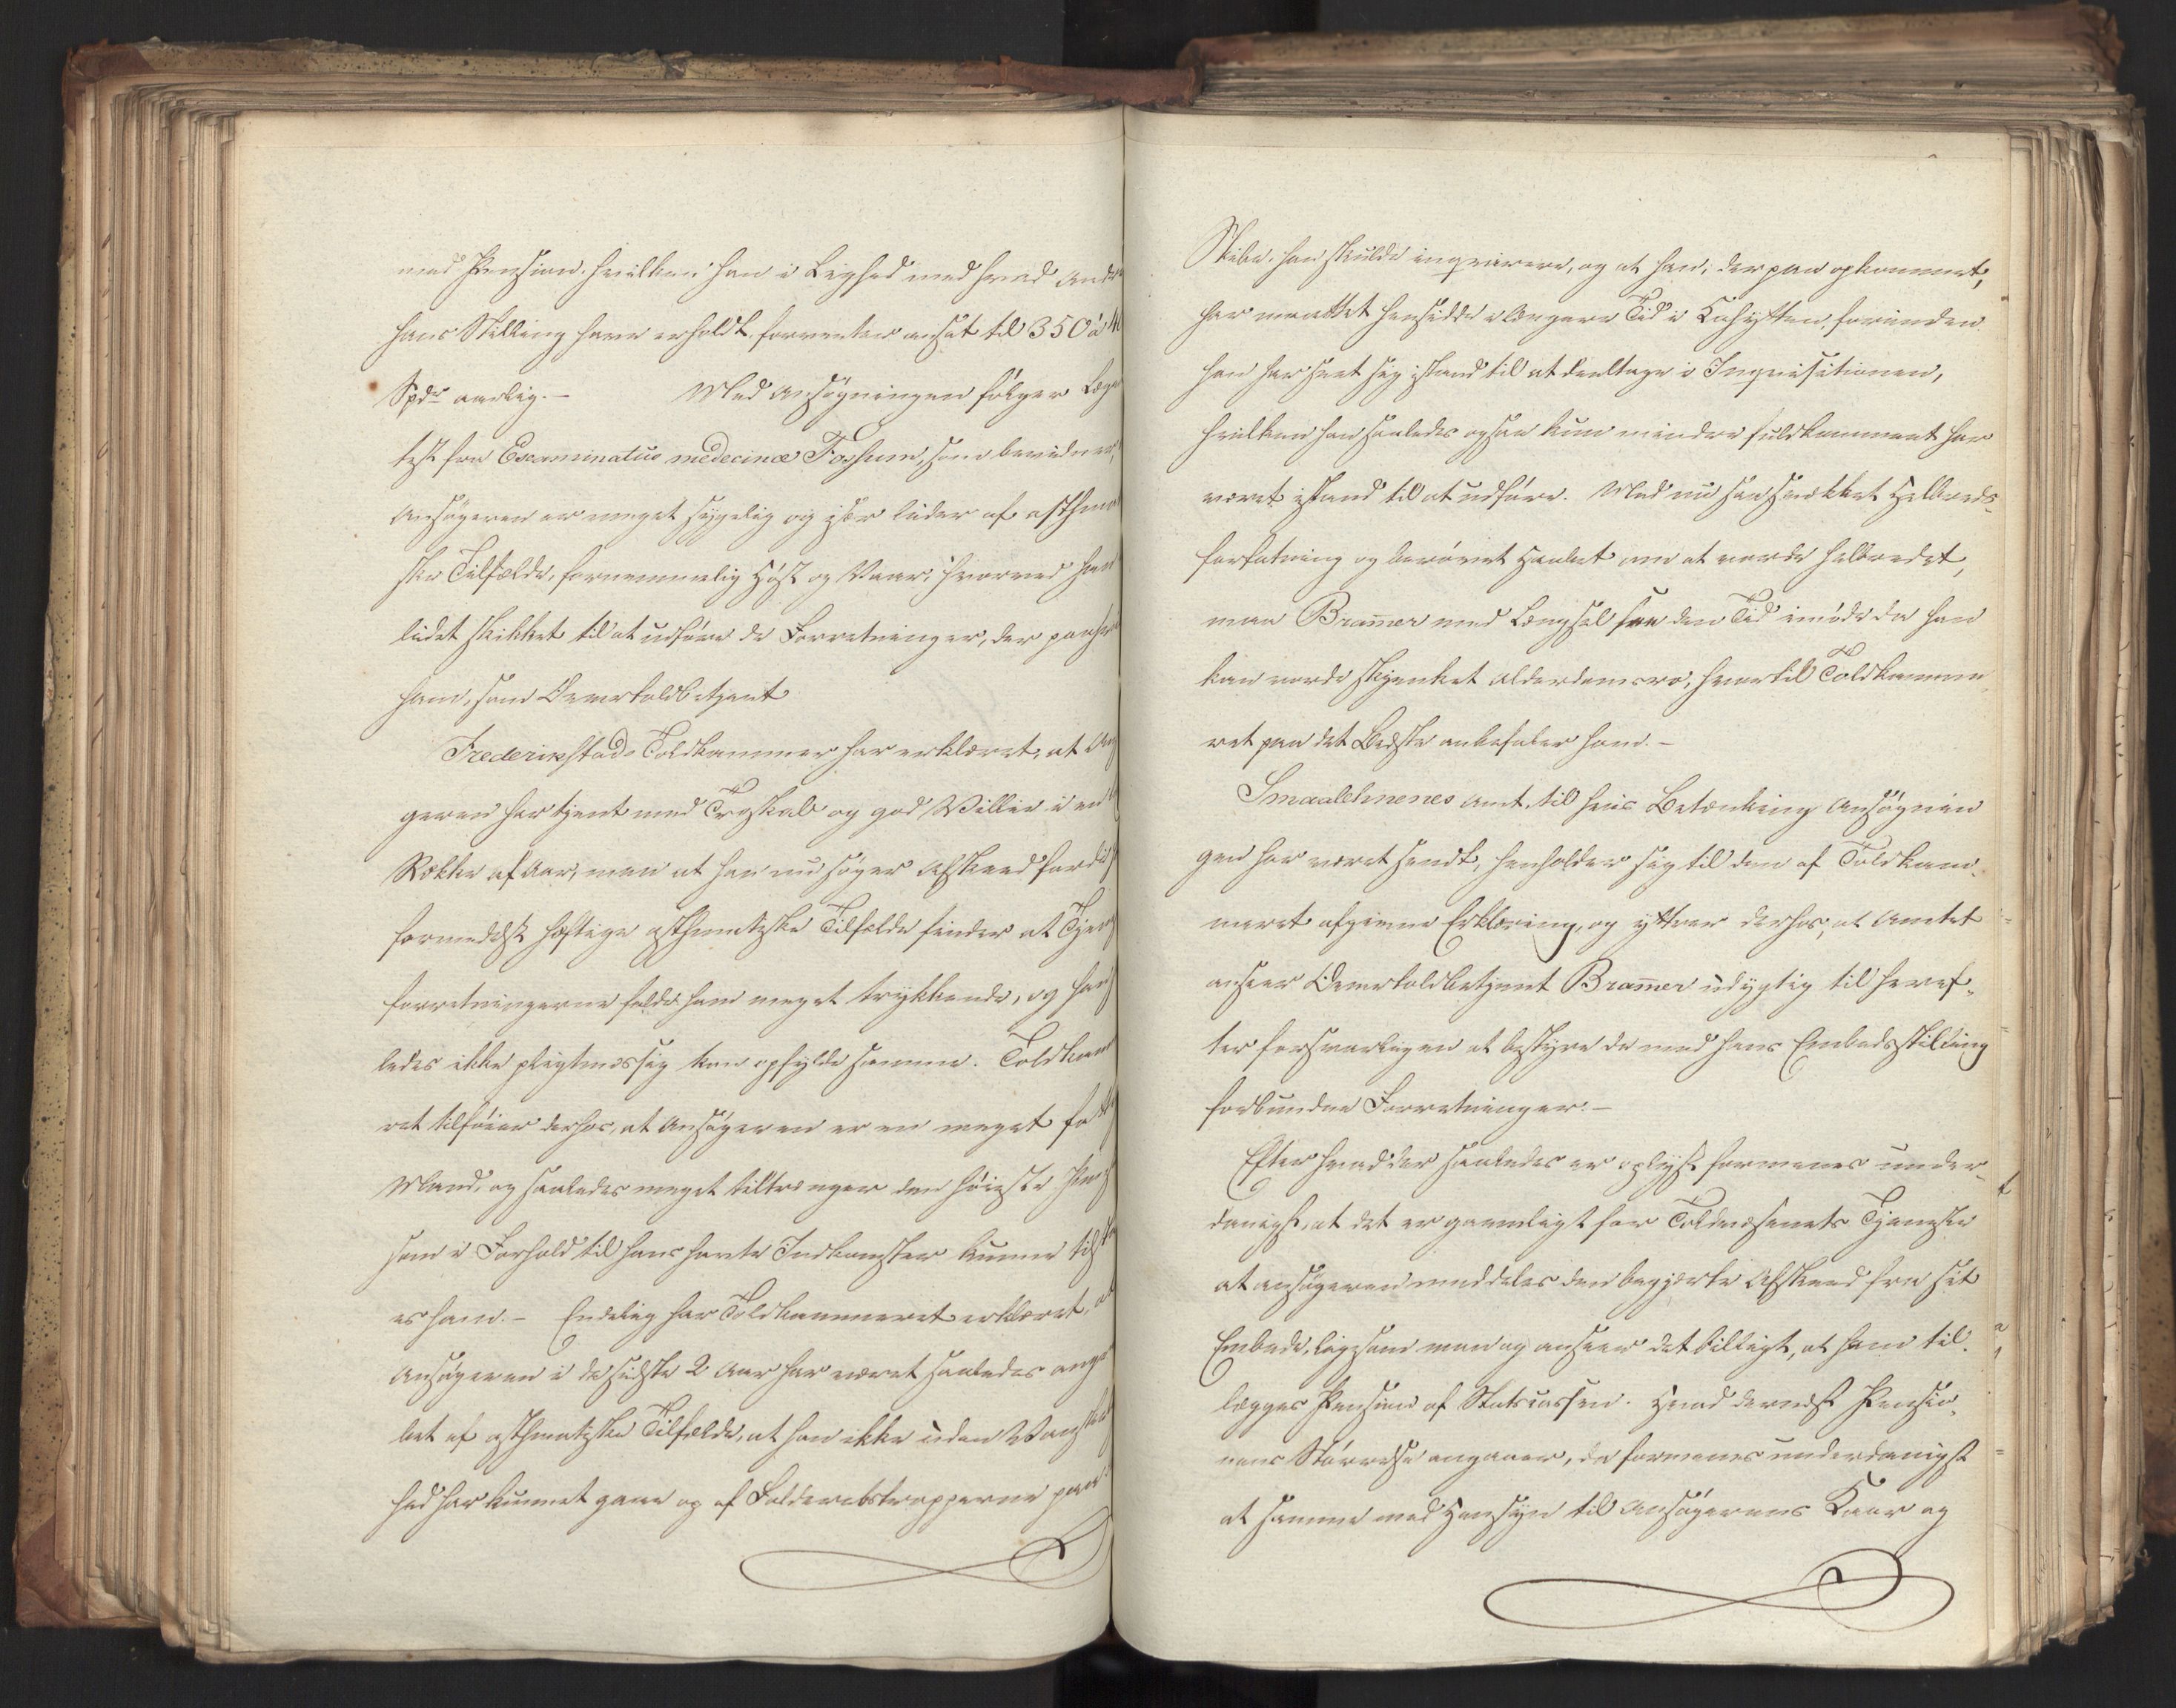 med Pension, hvilken han i Lighed med hvad andre
hans Stilling have erholdt, forventer ansat til 350 à 4
Spdr aarlig. – Med Ansøgningen følger Læge
test fra Examinatus medecinæ Foshum, som bevidner,
Ansøgeren er meget sygelig og især lider af asthma
ske Tilfælde, fornemmelig Høst og Vaar, hvorved han
lidet skikket til at udføre de Forretninger, der paahv
ham, som Overtoldbetjent
Frederikstads Toldkammer har erklæret, at An
geren har tjent med Troskab og god Villie i en
Række af Aar, men at han nu søger Afskeed fordi
formedelst heftige asthmatiske Tilfælde finder at Tjen
forretningerne falde ham meget trykkende, og saa
ledes ikke pligtmæssig kan opfylde samme. Toldkam
ret tilføier derhos, at Ansøgeren er en meget fatt
Mand, og saaledes meget tiltrænger den høieste Pen
som i Forhold til hans havte Indkomster kunne tilst
es ham. – Endelig har Toldkammeret erklæret, at
Ansøgeren i de sidste 2 Aar har været saaledes ang
bet af asthmatiske Tilfælde, at han ikke uden Vansk
hed har kunnet gaae op af Falderebstrapperne paa
Skibe, han skulde inqvirere, og at han, der paa opkommet,
har maattet hensidde i længere Tid i Cahytten, forinden
han har seet sig istand til at deeltage i Inqvisitionen,
hvilken han saaledes ogsaa kun mindre fuldkomment har
været istand til at udføre. Med nu saa svækket Helbreds-
forfatning og berøvet Haabet om at vorde helbredet,
maa Bramer med Længsel see den Tid imøde da han
kan vorde skjenket Alderdomsro, hvortil Toldkamme-
ret paa det Bedste anbefaler ham. –
Smaalehnenes Amt, til hvis Betænkning Ansøgnin
gen har været sendt, henholder sig til den af Toldkam-
meret afgivne Erklæring, og yttrer derhos, at Amtet
anseer Overtoldbetjent Bramer udygtig til heref-
ter forsvarligen at bestyre de med hans Embedsstilling
forbundne Forretninger. –
Efter hvad der saaledes er oplyst formenes under-
danigst, at det er gavnligt for Toldvæsenets Tjeneste
at Ansøgeren meddeles den begjærte Afskeed fra sit
Embede, ligesom man og anseer det billigt, at ham til-
lægges Pension af Statscassen. Hvad dernæst Pensio-
nens Størrelse angaaer, da formenes underdanigst
at samme med Hensyn til Ansøgerens Kaar og